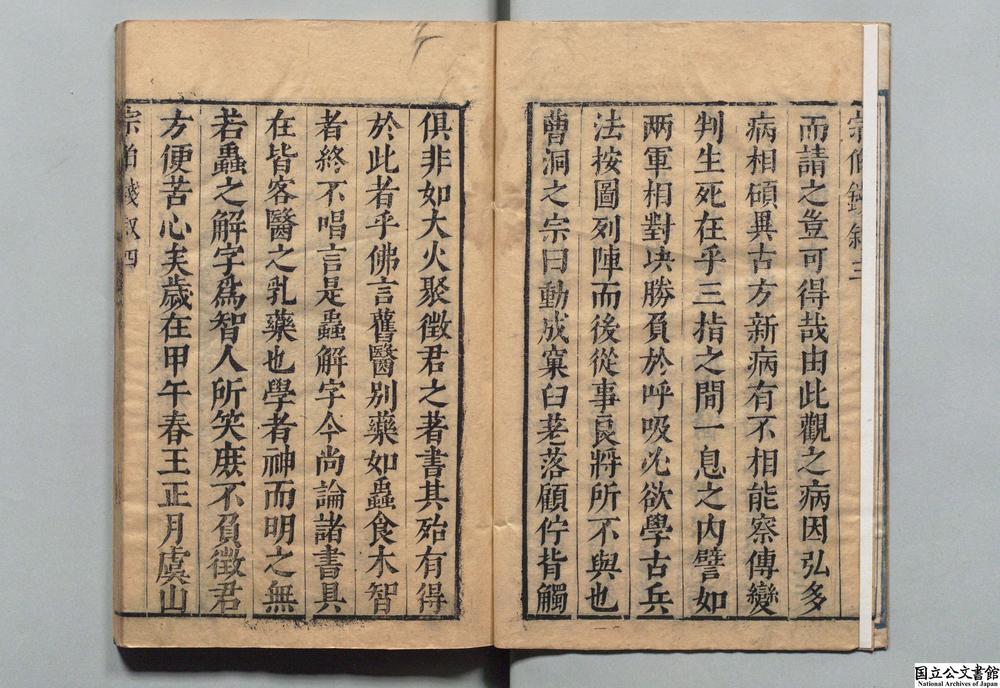 宗伯錢叙三
而請之豈可得哉由此觀之病因弘多
病相碩異古方新病有不相能察傳變
判生死在乎三指之間一息之内譬如
两軍相對决勝負於呼吸必欲學古兵
法按圖列陣而後從事良將所不與也
曹洞之宗曰動成窠臼差落顧佇背觸
俱非如大火聚徵君之著書其殆有得
於此者乎佛言舊醫別藥如蟲食木智
者終不唱言是蟲解字今尚論諸書具
在皆客醫之乳藥也學者神而明之無
若蟲之解字爲智人所笑庶不負徵君
方便苦心矣歲在甲午春王正月虞山
宗伯錢叙四
国立公文書館
National Archives of Japan